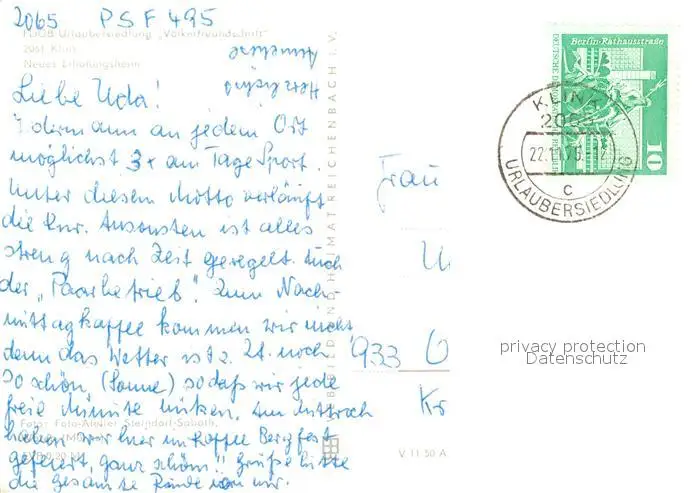 2065 PSF 495
FDGB Urlaubersiedlung „Völkerfreundschaft"
2061 Klink
Neues Erholungsheim
Herzlichst
Liebe Uda!
Jedermann an jedem Ort
möglichst 3x am Tage Sport.
Unter diesem Motto verläuft
die Kur. Ansonsten ist alles
streng nach Zeit geregelt. Auch
der „Paarbetrieb". Zum Nach-
mittagkaffee kommen wir nicht
denn das Wetter ist z. Zt. noch
so schön, (Sonne) sodaß wir jede
freie Minute nutzen. Am Mittwoch
haben wir hier im Kaffee Bergfest
gefeiert, ganz schön!! Grüße bitte
die gesamte Runde von mir.
Foto: Foto-Atelier Steindorf-Sabath,
BILD UND HEIMAT REICHENBACH i. V.
V 11 50 A
Frau
U
933 O
Kr
Berlin-Rathausstraße
10
KLINK
206
22.11.76
c
URLAUBERSIEDLUNG
privacy protection
Datenschutz